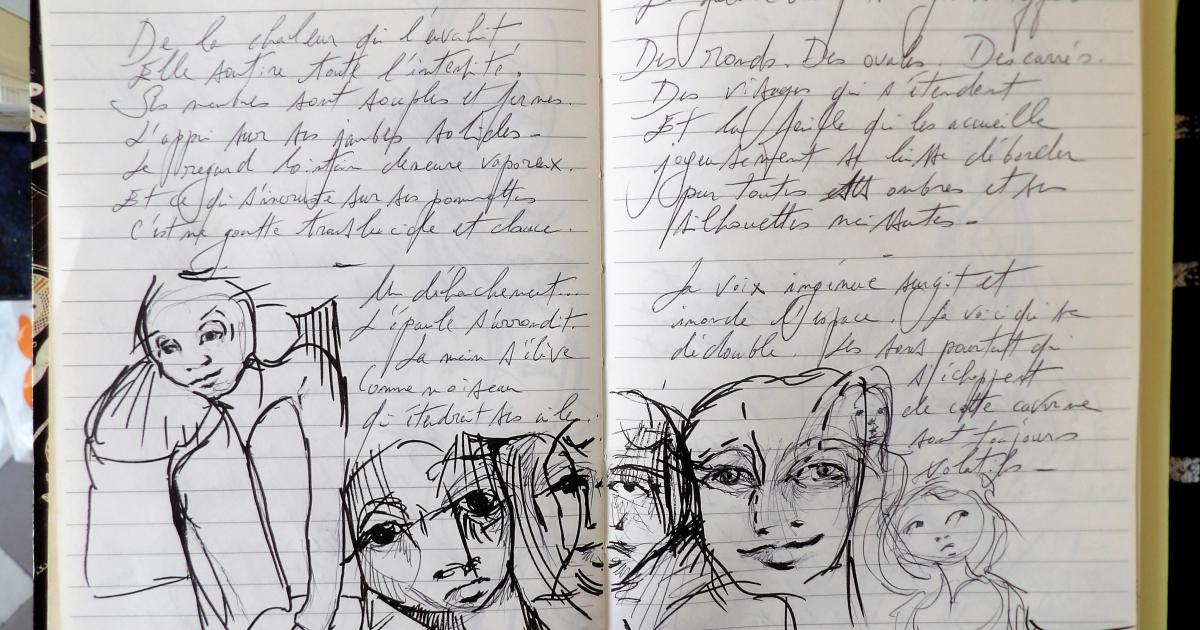 De la chaleur qui l'envahit
Elle soutire toute l'intensité.
Ses membres sont souples et fermes.
L'appui sur ses jambes solides -
Le regard lointain demeure vaporeux.
Et ce qui s'incruste sur ses pommettes
C'est une goutte translucide et douce.
Un détachement...
L'épaule s'arrondit.
La main s'élève
Comme un oiseau
qui étendrait ses ailes.
Des ronds. Des ovales. Des carrés.
Des visages qui s'étendent
Et la feuille qui les accueille
joyeusement se laisse déborder
par toutes ombres et ses
silhouettes naissantes -
La voix ingénue surgit et
inonde l'espace. La voici qui se
dédouble. Les sons pourtant qui
s'échappent
de cette caverne
sont toujours
volatils -